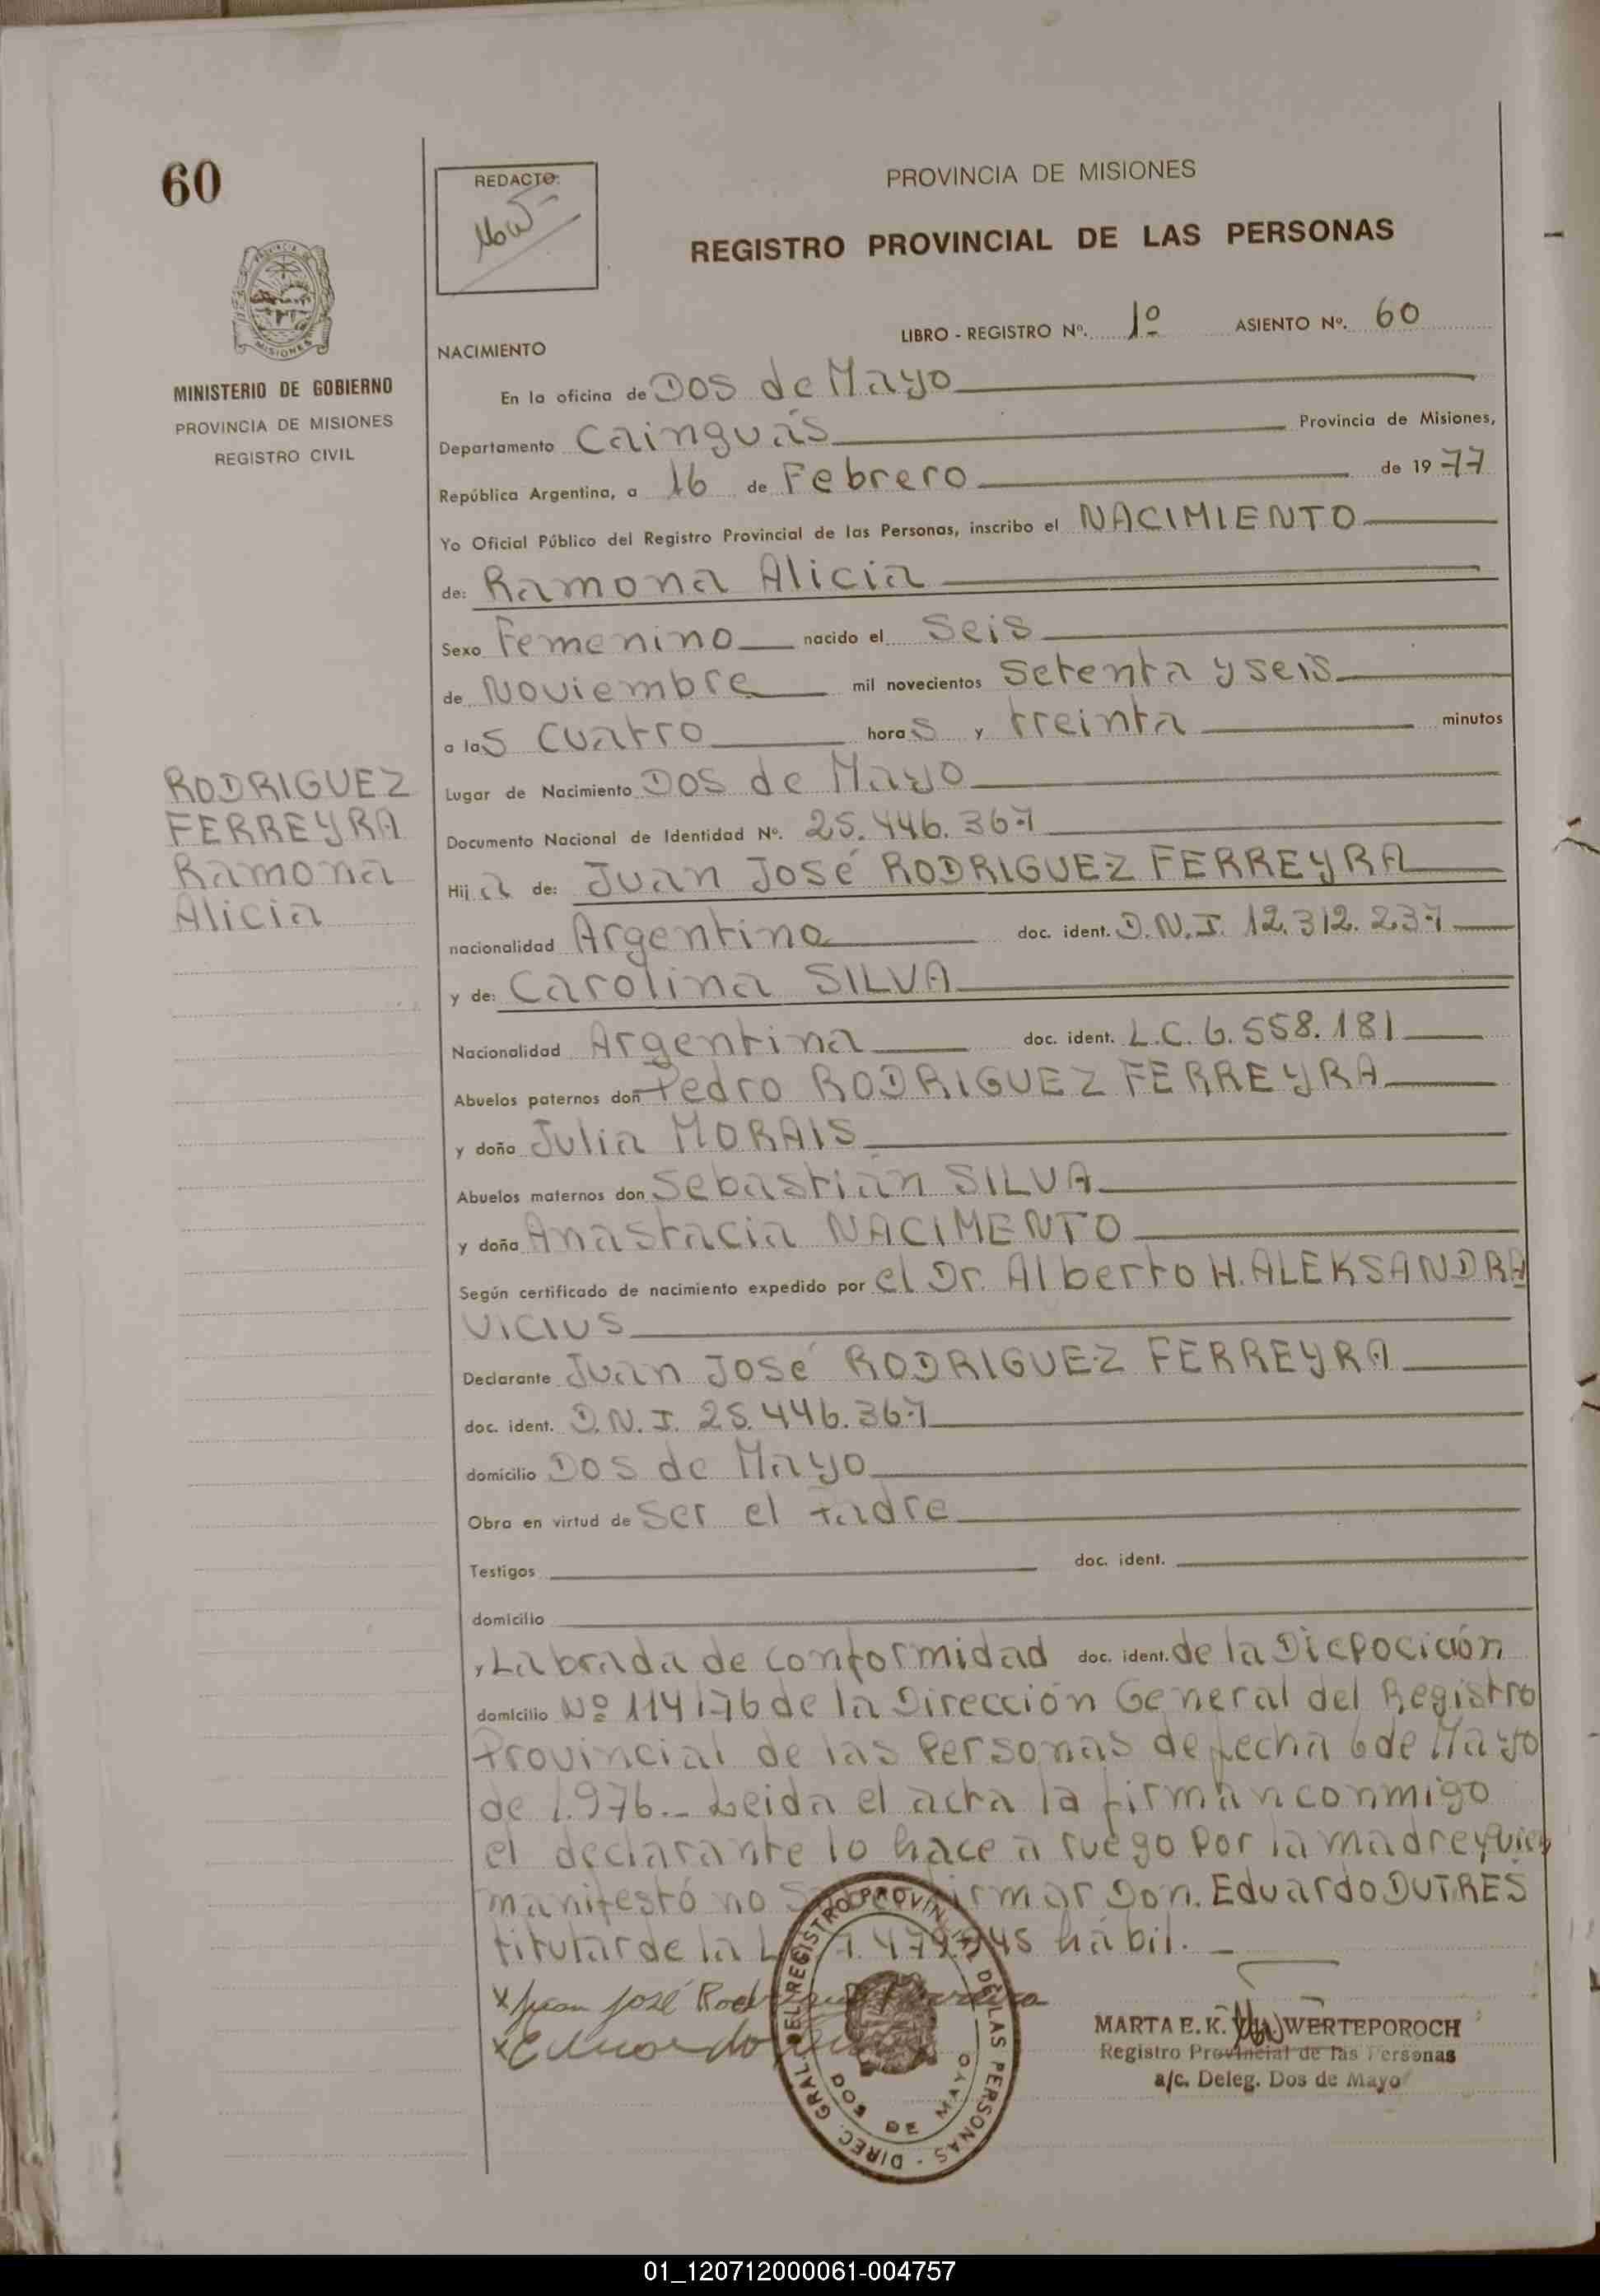 60
REDACTO:
PROVINCIA DE MISIONES
REGISTRO PROVINCIAL DE LAS PERSONAS
MISIONES
MINISTERIO DE GOBIERNO
PROVINCIA DE MISIONES
REGISTRO CIVIL
LIBRO - REGISTRO Nº. 1º ASIENTO Nº. 60
NACIMIENTO
En la oficina de Dos de Mayo
Departamento Cainguás Provincia de Misiones,
República Argentina, a 16 de Febrero de 1977
Yo Oficial Público del Registro Provincial de las Personas, inscribo el NACIMIENTO
de: Ramona Alicia
Sexo Femenino nacido el Seis
de Noviembre mil novecientos Setenta y seis
a las cuatro horas y treinta minutos
RODRIGUEZ
FERREYRA
Ramona
Alicia
Lugar de Nacimiento Dos de Mayo
Documento Nacional de Identidad Nº. 25.446.367
Hija de: Juan José RODRIGUEZ FERREYRA
nacionalidad Argentino doc. ident. D.N.I. 12.312.237
y de: Carolina SILVA
Nacionalidad Argentina doc. ident. L.C. 6.558.181
Abuelos paternos don Pedro RODRIGUEZ FERREYRA
y doña Julia MORAIS
Abuelos maternos don Sebastián SILVA
y doña Anastacia NACIMENTO
Según certificado de nacimiento expedido por el Dr. Alberto H. ALEKSANDRA
VICIUS
Declarante Juan José RODRIGUEZ FERREYRA
doc. ident. D.N.I. 25.446.367
domicilio Dos de Mayo
Obra en virtud de Ser el Padre
Testigos doc. ident.
domicilio
y Labrada de conformidad doc. ident. de la Dicpocición
domicilio Nº 114/76 de la Dirección General del Registro
Provincial de las Personas de fecha 6 de Mayo
de 1.976.- Leida el acta la firman conmigo
el declarante lo hace a ruego por la madre quien
manifestó no firmar Don. Eduardo DUTRES
titular de la hábil.
x Juan José Rodriguez Ferreira
x Eduardo
DIREC. GRAL. DEL REGISTRO PROVINCIAL DE LAS PERSONAS
DOS DE MAYO
MARTA E. K. WERTEPOROCH
Registro Provincial de las Personas
a/c. Deleg. Dos de Mayo
01_120712000061-004757